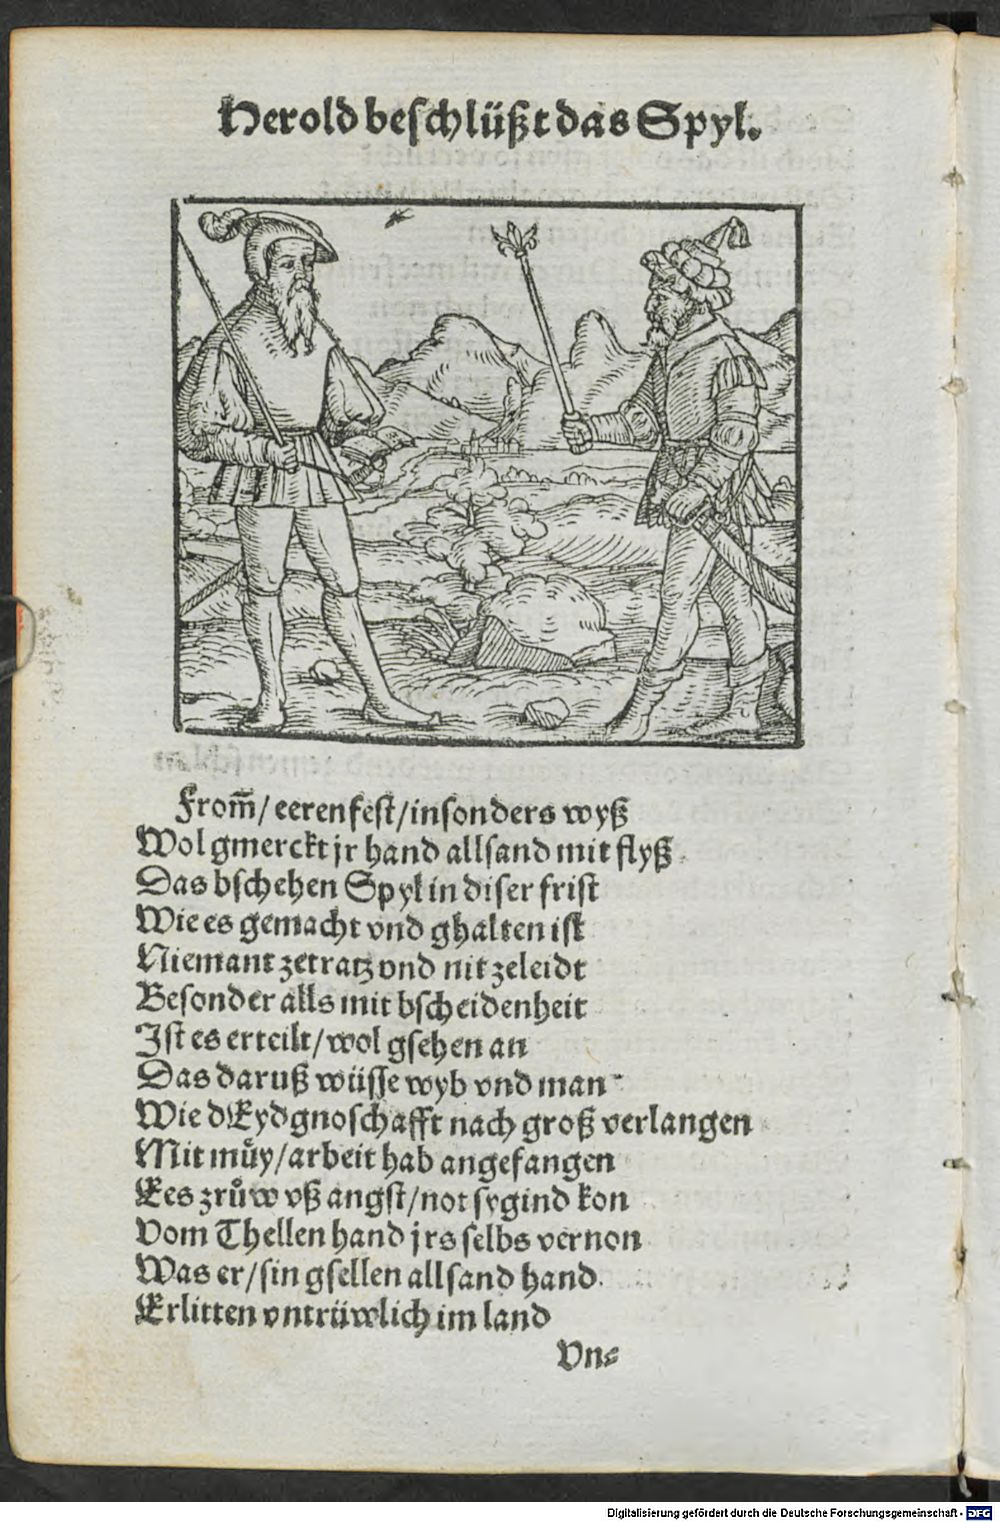 Herold beschlüßt das Spyl.
From̄/ eerenfest/ insonders wyß
Wol gmerckt jr hand allsand mit flyß
Das bschehen Spyl in diser frist
Wie es gemacht vnd ghalten ist
Niemant zetratz vnd nit zeleidt
Besonder alls mit bscheidenheit
Ist es erteilt/ wol gsehen an
Das daruß wüsse wyb vnd man
Wie dEydgnoschafft nach groß verlangen
Mit muͤy/ arbeit hab angefangen
Ees zruͦw vß angst/ not sygind kon
Vom Thellen hand jrs selbs vernon
Was er/ sin gsellen allsand hand
Erlitten vntrüwlich im land
Vn⸗
Digitalisierung gefördert durch die Deutsche Forschungsgemeinschaft - DFG